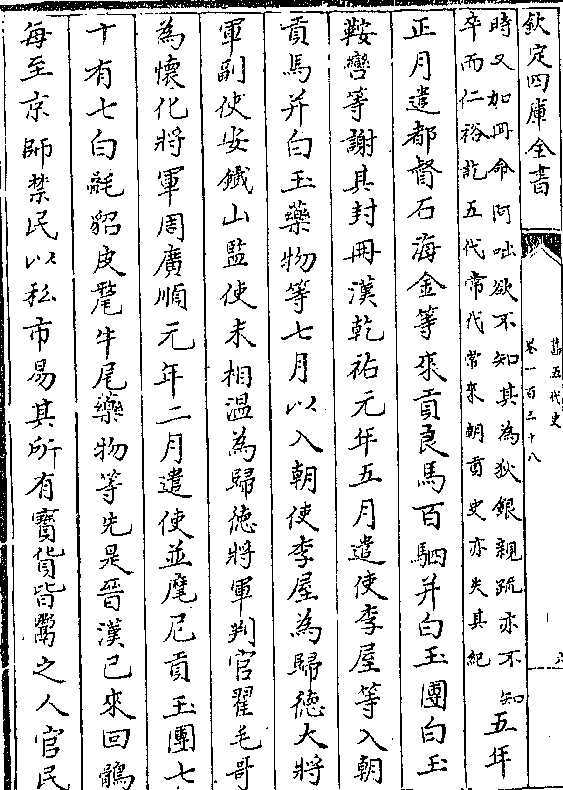 舊五代史
卷一百三十八
欽定四庫全書
時又加冊命阿咄欲不知其為狄銀親疏亦不知
卒而仁裕訖五代常代常來朝貢史亦失其紀
五年
正月遣都督石海金等來貢良馬百駟并白玉團白玉
鞍轡等謝其封冊漢乾祐元年五月遣使李屋等入朝
貢馬并白玉藥物等七月以入朝使李屋為歸徳大將
軍副使安鐵山監使未相溫為歸徳將軍判官翟毛哥
為懷化將軍周廣順元年二月遣使並摩尼貢玉團七
十有七白㲲貂皮氂牛尾藥物等先是晉漢已來回鶻
每至京師禁民以私市易其所有寶貨皆鬻之人官民